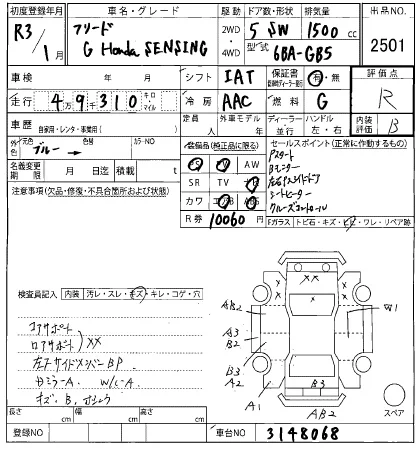 初度登録年月 車名・グレード 駆動 ドア数・形状 排気量 出品NO.
R3/1月 フリード G Honda SENSING 2WD・4WD 5 SW 1500cc 2501
型式 6BA-GB5
車検 年 月 シフト IAT 保証書 有・無 評価点
走行 49310 キロ・マイル 冷房 AAC 燃料 G R
車歴 自家用・レンタ・事業用( ) 定員 人 外車モデル 年 ディーラー・並行 ハンドル 左・右 内装評価 B
外色 元色 ブルー → 色替 カラーNO
装備品(純正品に限る) セールスポイント(正常に作動するもの)
名義変更期限 月 日迄 積載 t
PS PW AW
SR TV ナビ
カワ エアB ABS
R券 10060円
Pスタート
Bモニター
左右Pスライドドア
シートヒーター
クルーズコントロール
注意事項(欠品・修復・不具合箇所および状態)
Fガラス トビ石・キズ・ヒビ・ワレ・リペア跡
検査員記入 内装 汚レ・スレ・キズ・キレ・コゲ・穴
コアサポート
ロアサポート XX
左F サイドメンバー BP
W/C-A
キズ、B、
X X
X X
AB2
A3
B2
B3
A2
A1
W1
B3
AB2
スペア
長さ cm 幅 cm 高さ cm
登録NO 車台NO 3148068